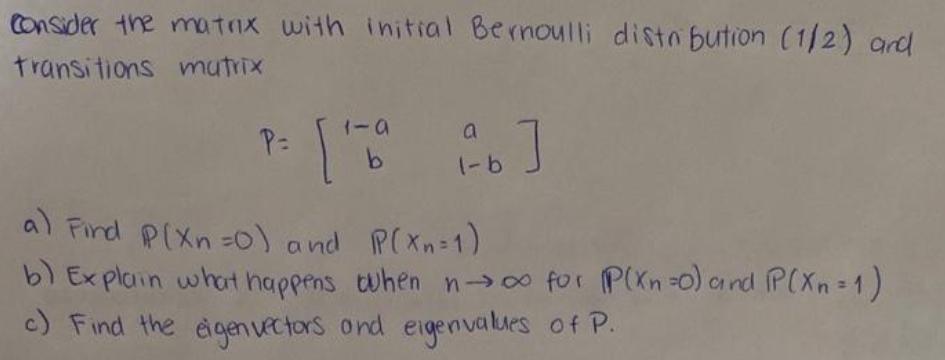 Consider the matrix with initial Bernoulli distribution (1/2) and
transitions matrix
P= [ 1-a a
b 1-b ]
a) Find P(Xn=0) and P(Xn=1)
b) Explain what happens when n→∞ for P(Xn=0) and P(Xn=1)
c) Find the eigenvectors and eigenvalues of P.